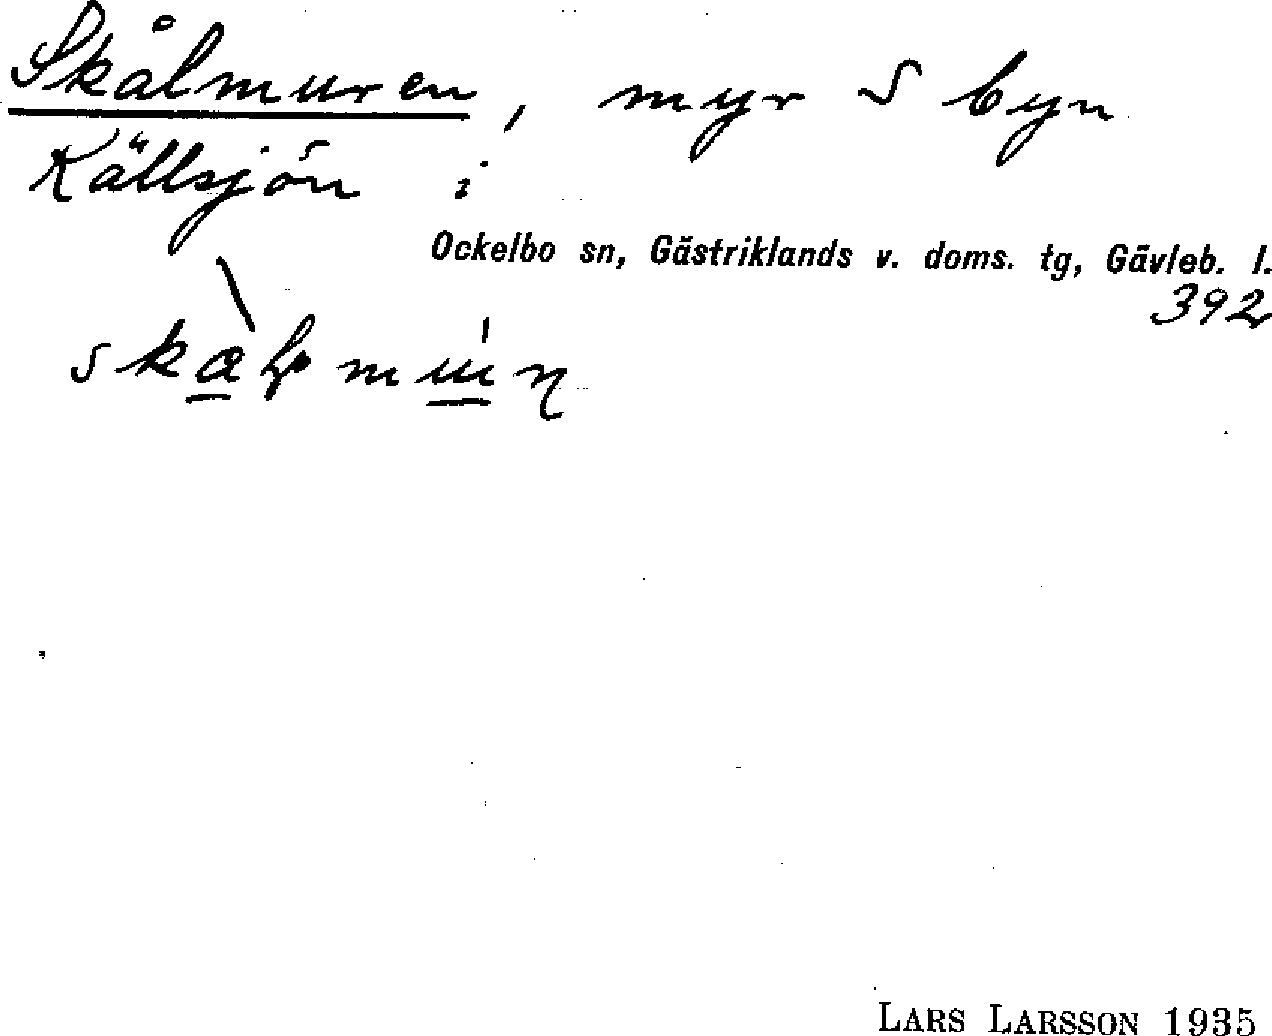 Skålmuren, myr S byn
Källsjön i
Ockelbo sn, Gästriklands v. doms. tg, Gävleb. l.
392
LARS LARSSON 1935